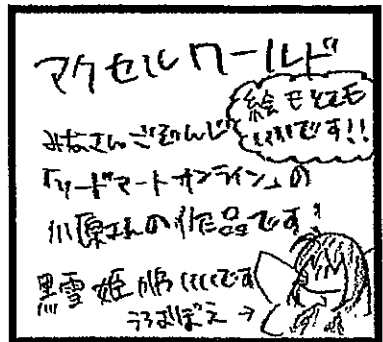 アクセルワールド
絵もとても
いいです!!
みなさんごぞんじ
「ソードアートオンライン」の
川原さんの作品です!
黒雪姫が いいです
うろおぼえ→